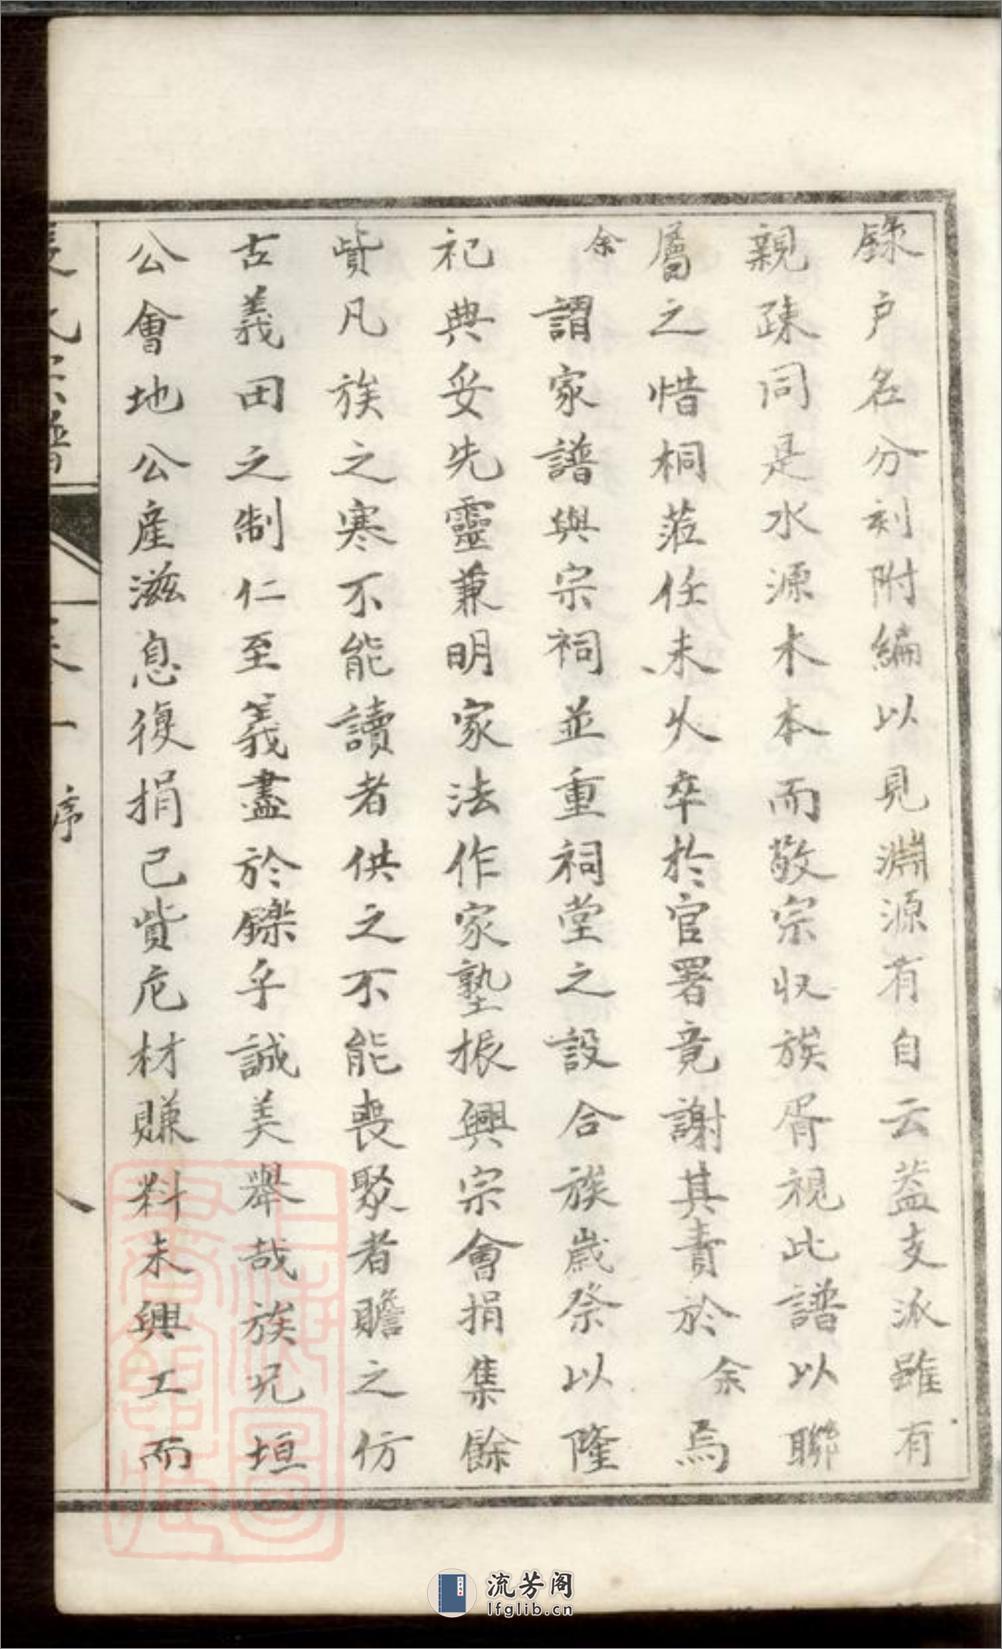 錄户名分刻附編以見淵源有自云葢支派雖有
親疎同是水源木本而敬宗收族胥視此譜以聯
屬之惜桐蒞任未久卒於官署竟謝其責於余焉
余謂家譜與宗祠並重祠堂之設合族歲祭以隆
祀典妥先靈兼明家法作家塾振興宗會捐集餘
貲凡族之寒不能讀者供之不能喪聚者贍之仿
古義田之制仁至義盡於鑠乎誠美舉哉族兄垣
公會地公產滋息復捐己貲庀材賺料未興工而
氏宗譜
卷一 序
八
上海圖書館藏
流芳阁
lfglib.cn